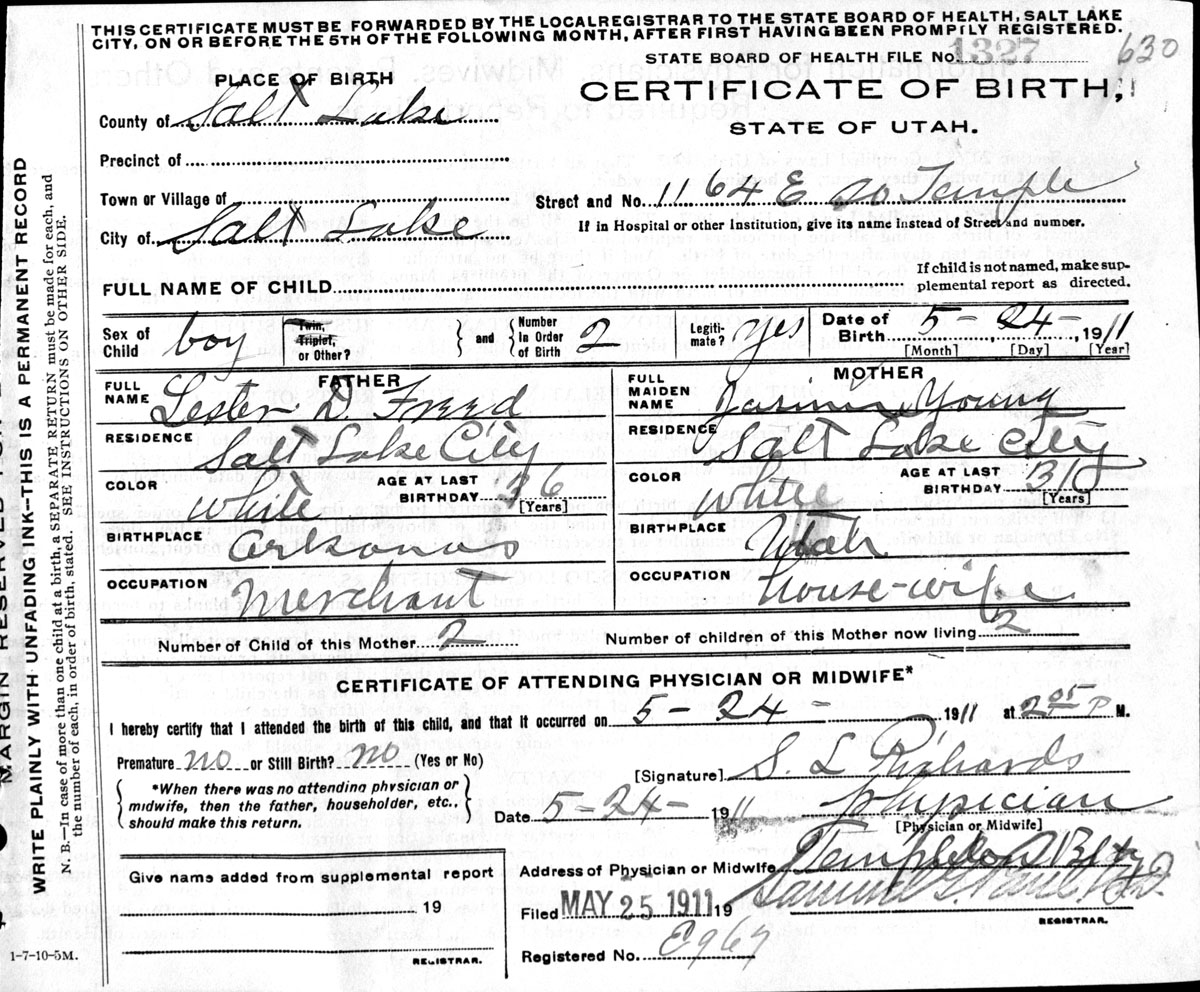 THIS CERTIFICATE MUST BE FORWARDED BY THE LOCALREGISTRAR TO THE STATE BOARD OF HEALTH, SALT LAKE
CITY, ON OR BEFORE THE 5TH OF THE FOLLOWING MONTH, AFTER FIRST HAVING BEEN PROMPTLY REGISTERED.
STATE BOARD OF HEALTH FILE No. 1327 630
PLACE OF BIRTH
CERTIFICATE OF BIRTH,
STATE OF UTAH.
County of Salt Lake
Precinct of
Town or Village of
Street and No. 1164 E So Temple
City of Salt Lake
If in Hospital or other Institution, give its name instead of Street and number.
FULL NAME OF CHILD
If child is not named, make sup-
plemental report as directed.
Sex of Child boy
Twin, Triplet, or Other? and Number In Order of Birth 2
Legiti-mate? yes
Date of Birth 5-24-, 1911
[Month] [Day] [Year]
FATHER
MOTHER
FULL NAME Lester D. Freed
FULL MAIDEN NAME Young
RESIDENCE Salt Lake City
RESIDENCE Salt Lake City
COLOR White
AGE AT LAST BIRTHDAY 36 [Years]
COLOR White
AGE AT LAST BIRTHDAY [Years]
BIRTHPLACE
BIRTHPLACE Utah
OCCUPATION Merchant
OCCUPATION house-wife
Number of Child of this Mother 2
Number of children of this Mother now living 2
CERTIFICATE OF ATTENDING PHYSICIAN OR MIDWIFE*
I hereby certify that I attended the birth of this child, and that it occurred on 5-24-, 1911 at 2 05 P M.
Premature no or Still Birth? no (Yes or No)
[Signature] S. L. Richards
*When there was no attending physician or
midwife, then the father, householder, etc.,
should make this return.
Date 5-24- 1911 physician
[Physician or Midwife]
Give name added from supplemental report
19
REGISTRAR.
Address of Physician or Midwife Templeton
Filed MAY 25 1911 19
REGISTRAR.
Registered No. E967
MARGIN RESERVE
WRITE PLAINLY WITH UNFADING INK—THIS IS A PERMANENT RECORD
N. B.—In case of more than one child at a birth, a SEPARATE RETURN must be made for each, and
the number of each, in order of birth, stated. SEE INSTRUCTIONS ON OTHER SIDE.
1-7-10-5M.